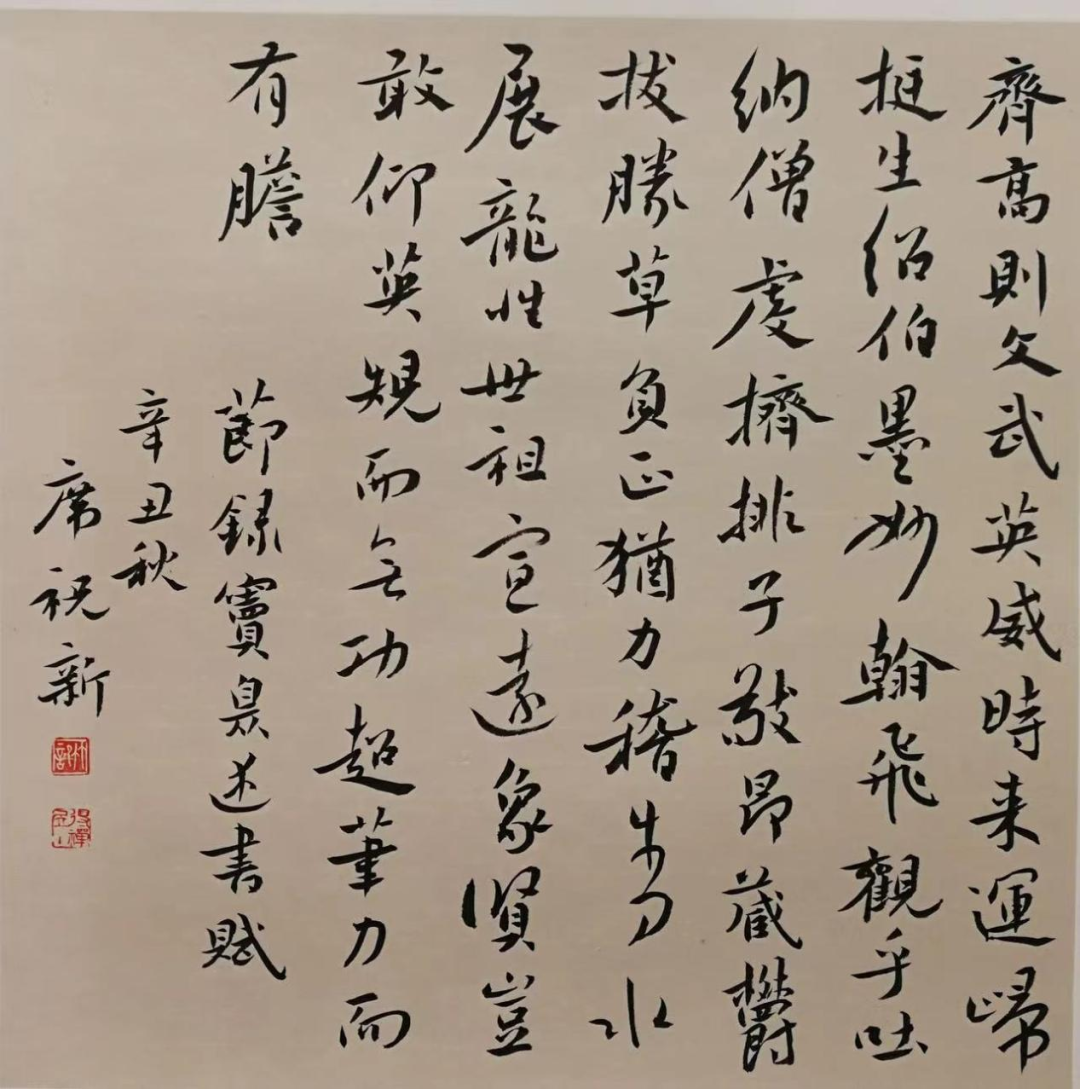 齊高則文武英威時来運歸
挺生紹伯墨妙翰飛觀乎吐
納僧虔擠排子敬昂藏欝
拔勝草負正猶力稽牛刀水
展龍性世祖宣遠象賢豈
敢仰英規而無功超筆力而
有膽
節録竇臮述書賦
辛丑秋
席祝新